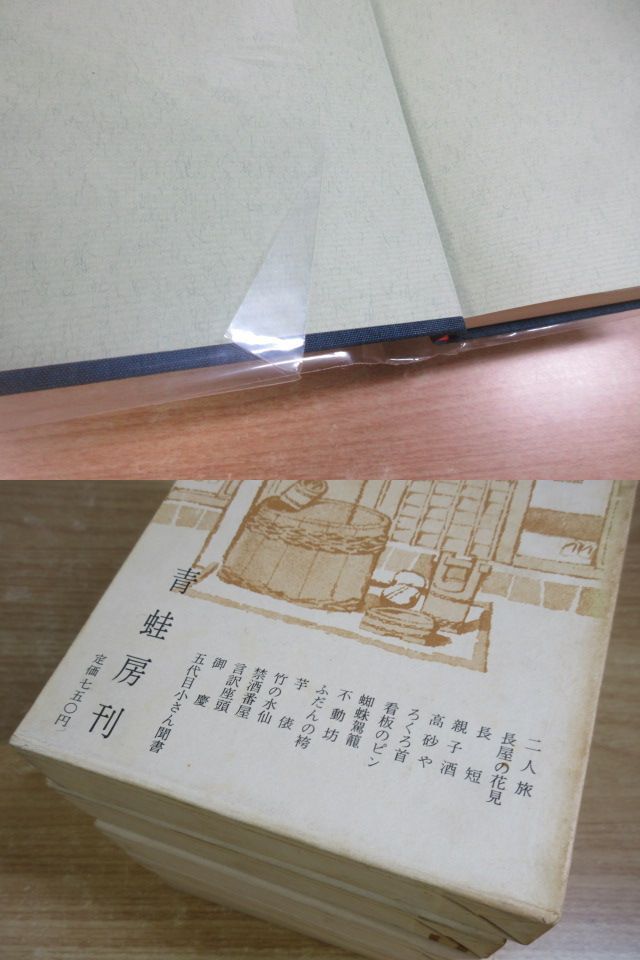 二人旅
長屋の花見
長短
親子酒
高砂や
ろくろ首
看板のピン
蜘蛛駕籠
不動坊
ふだんの袴
芋俵
竹の水仙
禁酒番屋
言訳座頭
御慶
五代目小さん聞書
青蛙房刊
定価七五〇円